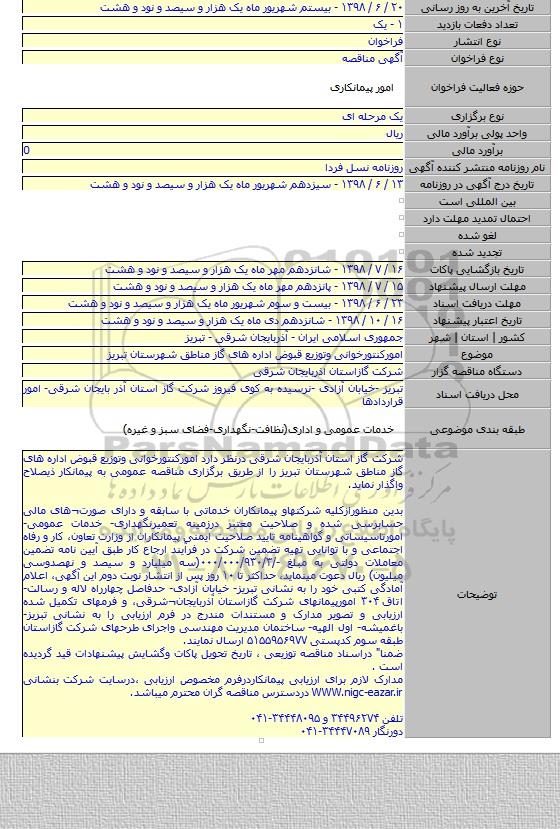 تاریخ آخرین به روز رسانی ۲۰ / ۶ / ۱۳۹۸ - بیستم شهریور ماه یک هزار و سیصد و نود و هشت
تعداد دفعات بازدید ۱ - یک
نوع انتشار فراخوان
نوع فراخوان آگهی مناقصه
حوزه فعالیت فراخوان امور پیمانکاری
نوع برگزاری یک مرحله ای
واحد پولی برآورد مالی ریال
برآورد مالی 0
نام روزنامه منتشر کننده آگهی روزنامه نسل فردا
تاریخ درج آگهی در روزنامه ۱۳ / ۶ / ۱۳۹۸ - سیزدهم شهریور ماه یک هزار و سیصد و نود و هشت
بین المللی است
احتمال تمدید مهلت دارد
لغو شده
تجدید شده
تاریخ بازگشایی پاکات ۱۶ / ۷ / ۱۳۹۸ - شانزدهم مهر ماه یک هزار و سیصد و نود و هشت
مهلت ارسال پیشنهاد ۱۵ / ۷ / ۱۳۹۸ - پانزدهم مهر ماه یک هزار و سیصد و نود و هشت
مهلت دریافت اسناد ۲۳ / ۶ / ۱۳۹۸ - بیست و سوم شهریور ماه یک هزار و سیصد و نود و هشت
تاریخ اعتبار پیشنهاد ۱۶ / ۱۰ / ۱۳۹۸ - شانزدهم دی ماه یک هزار و سیصد و نود و هشت
کشور | استان | شهر جمهوری اسلامی ایران - آذربایجان شرقی - تبریز
موضوع امورکنتورخوانی وتوزیع قبوض اداره های گاز مناطق شهرستان تبریز
دستگاه مناقصه گزار شرکت گازاستان آذربایجان شرقی
محل دریافت اسناد تبریز -خیابان آزادی -نرسیده به کوی فیروز شرکت گاز استان آذر بایجان شرقی- امور
قراردادها
طبقه بندی موضوعی خدمات عمومی و اداری(نظافت-نگهداری-فضای سبز و غیره)
ParsNamadData
توضیحات
شرکت گاز استان آذربایجان شرقی درنظر دارد امورکنتورخوانی وتوزیع قبوض اداره های
گاز مناطق شهرستان تبریز را از طریق برگزاری مناقصه عمومی به پیمانکار ذیصلاح
واگذار نماید.
بدین منظورازکلیه شرکتهاو پیمانکاران خدماتی با سابقه و دارای صورت¬های مالی
حسابرسی شده و صلاحیت معتبر درزمینه تعمیرنگهداری- خدمات عمومی-
امورتاسیساتی و گواهینامه تایید صلاحیت ایمنی پیمانکاران از وزارت تعاون، کار و رفاه
اجتماعی و با توانایی تهیه تضمین شرکت در فرآیند ارجاع کار طبق آیین نامه تضمین
معاملات دولتی به مبلغ -/۳/۹۳۰/۰۰۰/۰۰۰(سه میلیارد و سیصد و نهصدوسی
میلیون) ریال دعوت مینماید، حداکثر تا ۱۰ روز پس از انتشار نوبت دوم این آگهی، اعلام
آمادگی کتبی خود را به نشانی تبریز- خیابان آزادی- حدفاصل چهارراه لاله و رسالت-
اتاق ۳۰۴ امورپیمانهای شرکت گازاستان آذربایجان¬شرقی، و فرمهای تکمیل شده
ارزیابی و تصویر مدارک و مستندات مندرج در فرم ارزیابی را به نشانی تبریز-
باغمیشه- اول الهیه- ساختمان مدیریت مهندسی واجرای طرحهای شرکت گازاستان
طبقه سوم کدپستی ۵۱۵۵۹۵۶۹۷۷ ارسال نمایند.
ضمنا" دراسناد مناقصه توزیعی ، تاریخ تحویل پاکات وگشایش پیشنهادات قید گردیده
است .
مدارک لازم برای ارزیابی پیمانکاردرفرم مخصوص ارزیابی ،درسایت شرکت بنشانی
WWW.nigc-eazar.ir دردسترس مناقصه گران محترم میباشد.
تلفن ۳۴۴۹۶۲۷۴ و ۳۴۴۴۸۰۹۵-۰۴۱
دورنگار ۳۴۴۴۷۰۸۹-۰۴۱